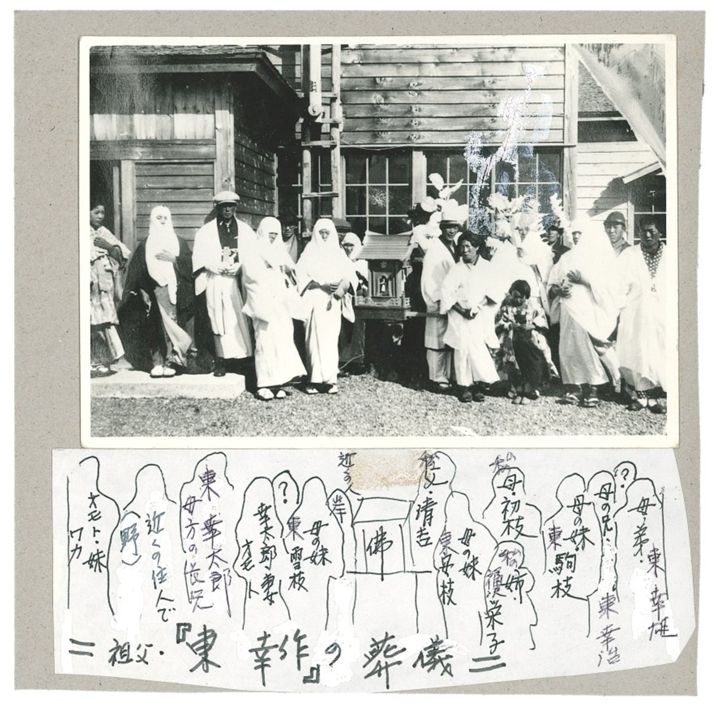 オモト・妹
ワカ
近くの住人で
(野)
東・幸太郎
母方の長兄
幸太郎・妻
オモト
?
母の妹
東雪枝
佛
父・清吉
母の妹
私の
母・初枝
私の
姉・
栄子
母の妹
東駒枝
母の兄
東幸治
?
母・弟・
東幸雄
=祖父・『東 幸作』の葬儀=